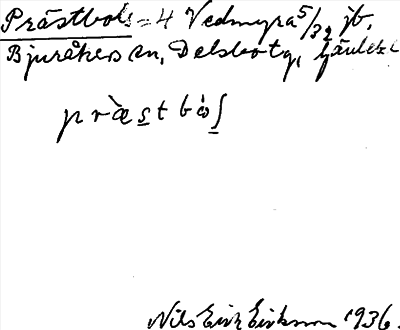 Prästbols = 4 Vedmyra 5/32 jb,
Bjuråkers sn, Delsbo tg, Gävlebl
præstbòʃ
Nils Erik Eriksson 1936.